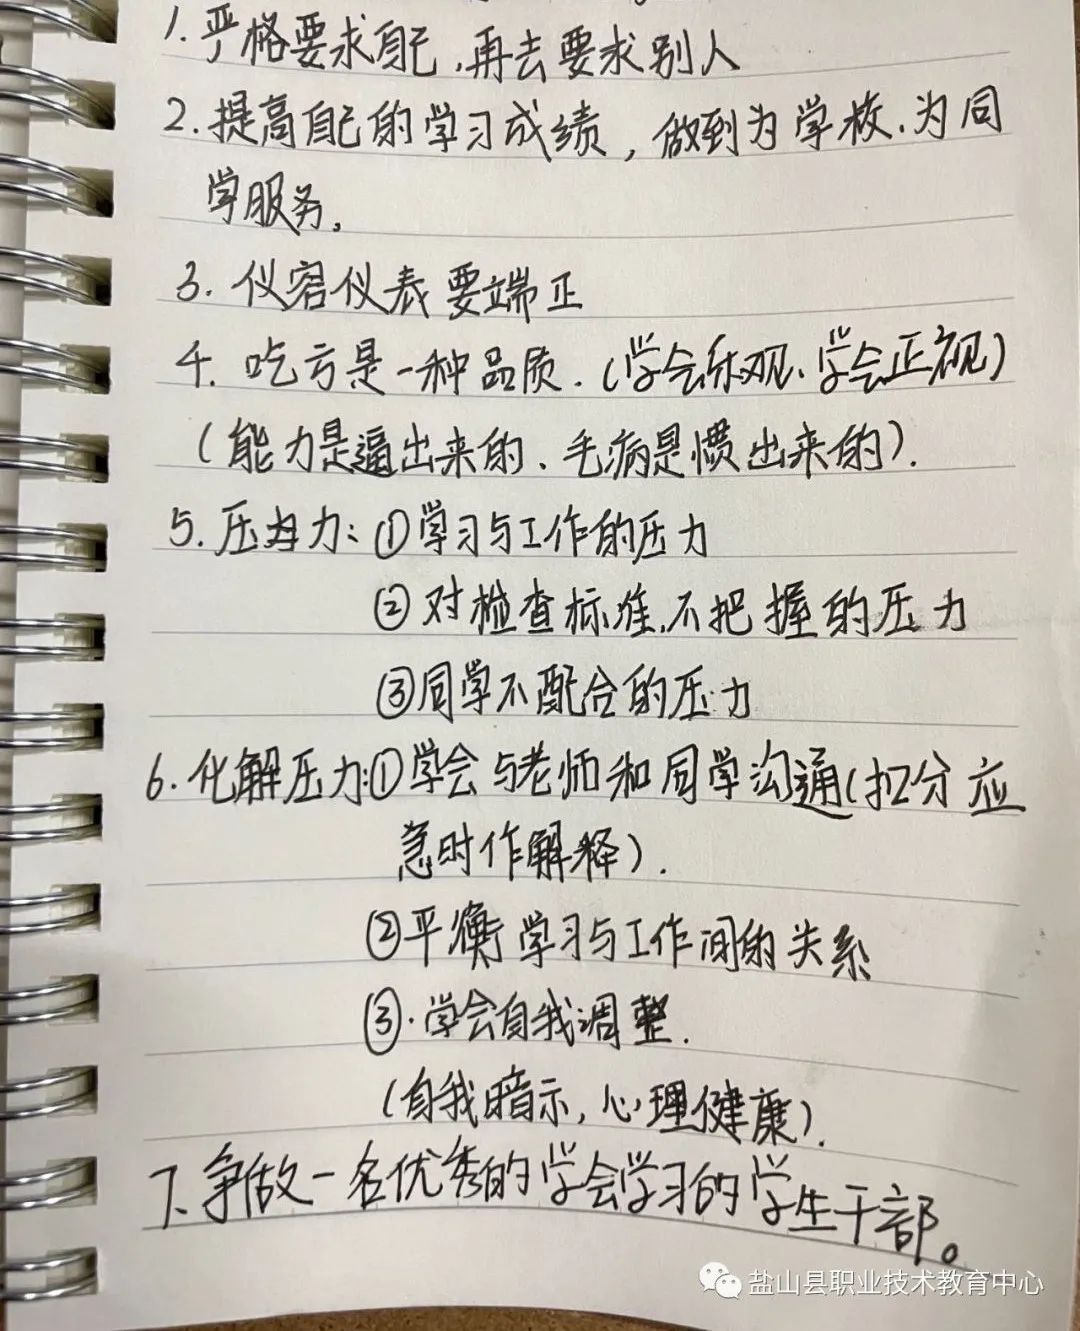 1.严格要求自己,再去要求别人
2.提高自己的学习成绩,做到为学校、为同
学服务,
3.仪容仪表要端正
4.吃亏是一种品质.(学会乐观、学会正视)
(能力是逼出来的、毛病是惯出来的).
5.压力:①学习与工作的压力
②对检查标准,不把握的压力
③同学不配合的压力
6.化解压力:①学会与老师和同学沟通(扣分应
急时作解释).
②平衡学习与工作间的关系
③.学会自我调整.
(自我暗示,心理健康).
7.争做一名优秀的学会学习的学生干部。
盐山县职业技术教育中心